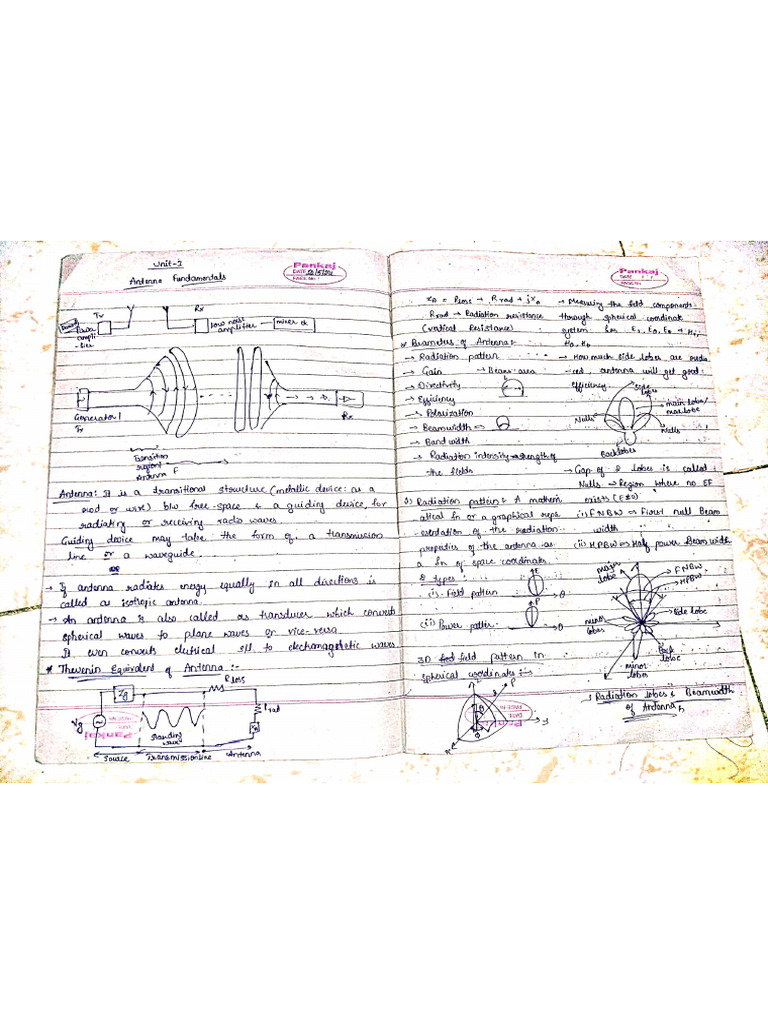 Unit-I
Antenna Fundamentals
Pankaj
DATE
PAGE NO.
Tx
Rx
Power
ampli-
fier
low noise
amplifier
mixer ck
Generator/
Tx
Rx
Transition
region/
Antenna F
Antenna: It is a transitional structure (metallic device: as a
rod or wire) b/w free-space & a guiding device for
radiating or receiving radio waves.
Guiding device may take the form of a transmission
line or a waveguide.
→ If antenna radiates energy equally in all directions is
called as isotropic antenna.
→ An antenna is also called as transducer which converts
spherical waves to plane waves or vice-versa.
It even converts electrical s/l to electromagnetic waves.
* Thevenin Equivalent of Antenna :-
R loss
Zg
Vg
rad
Standing
wave
Source
Transmission line
Antenna
Pankaj
DATE / /
PAGE NO.
= Rloss + Rrad + jXa
Rrad → Radiation resistance
(vertical Resistance)
* Parameters of Antenna :-
→ Radiation pattern
→ Gain → Beam-area
→ Directivity
→ Efficiency
→ Polarization
→ Beamwidth ⇒
→ Band width
→ Radiation intensity → strength of
the fields
1) Radiation pattern : A mathem
atical fn or a graphical repr
esentation of the radiation
properties of the antenna as
a fn of space coordinates.
2 types :-
(i) Field pattern
E
θ
(ii) Power pattern
P
θ
3D field pattern in
spherical coordinates :-
Z
P
θ
y
φ
→ Measuring the field components
through spherical coordinate
system
→ How much side lobes are
antenna will get good
efficiency
side
lobes
main lobe/
maj lobe
Nulls
Nulls
Back lobes
→ Gap of 2 lobes is called
Nulls → Region where no EF
exists (E=0)
(i) FNBW ⇒ First null Beam
width
(ii) HPBW ⇒ Half power Beam width
main
lobe
FNBW
HPBW
minor
lobes
Side lobe
Back
lobe
minor
lobes
Radiation lobes & Beamwidth
of Antenna